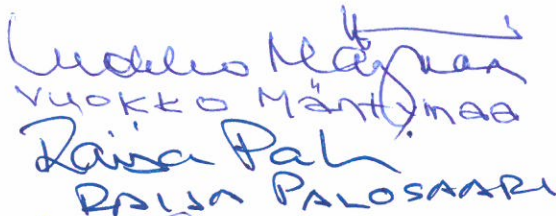 Vuokko Mäntymaa
VUOKKO MÄNTYMAA
Raija Pal
RAIJA PALOSAARI